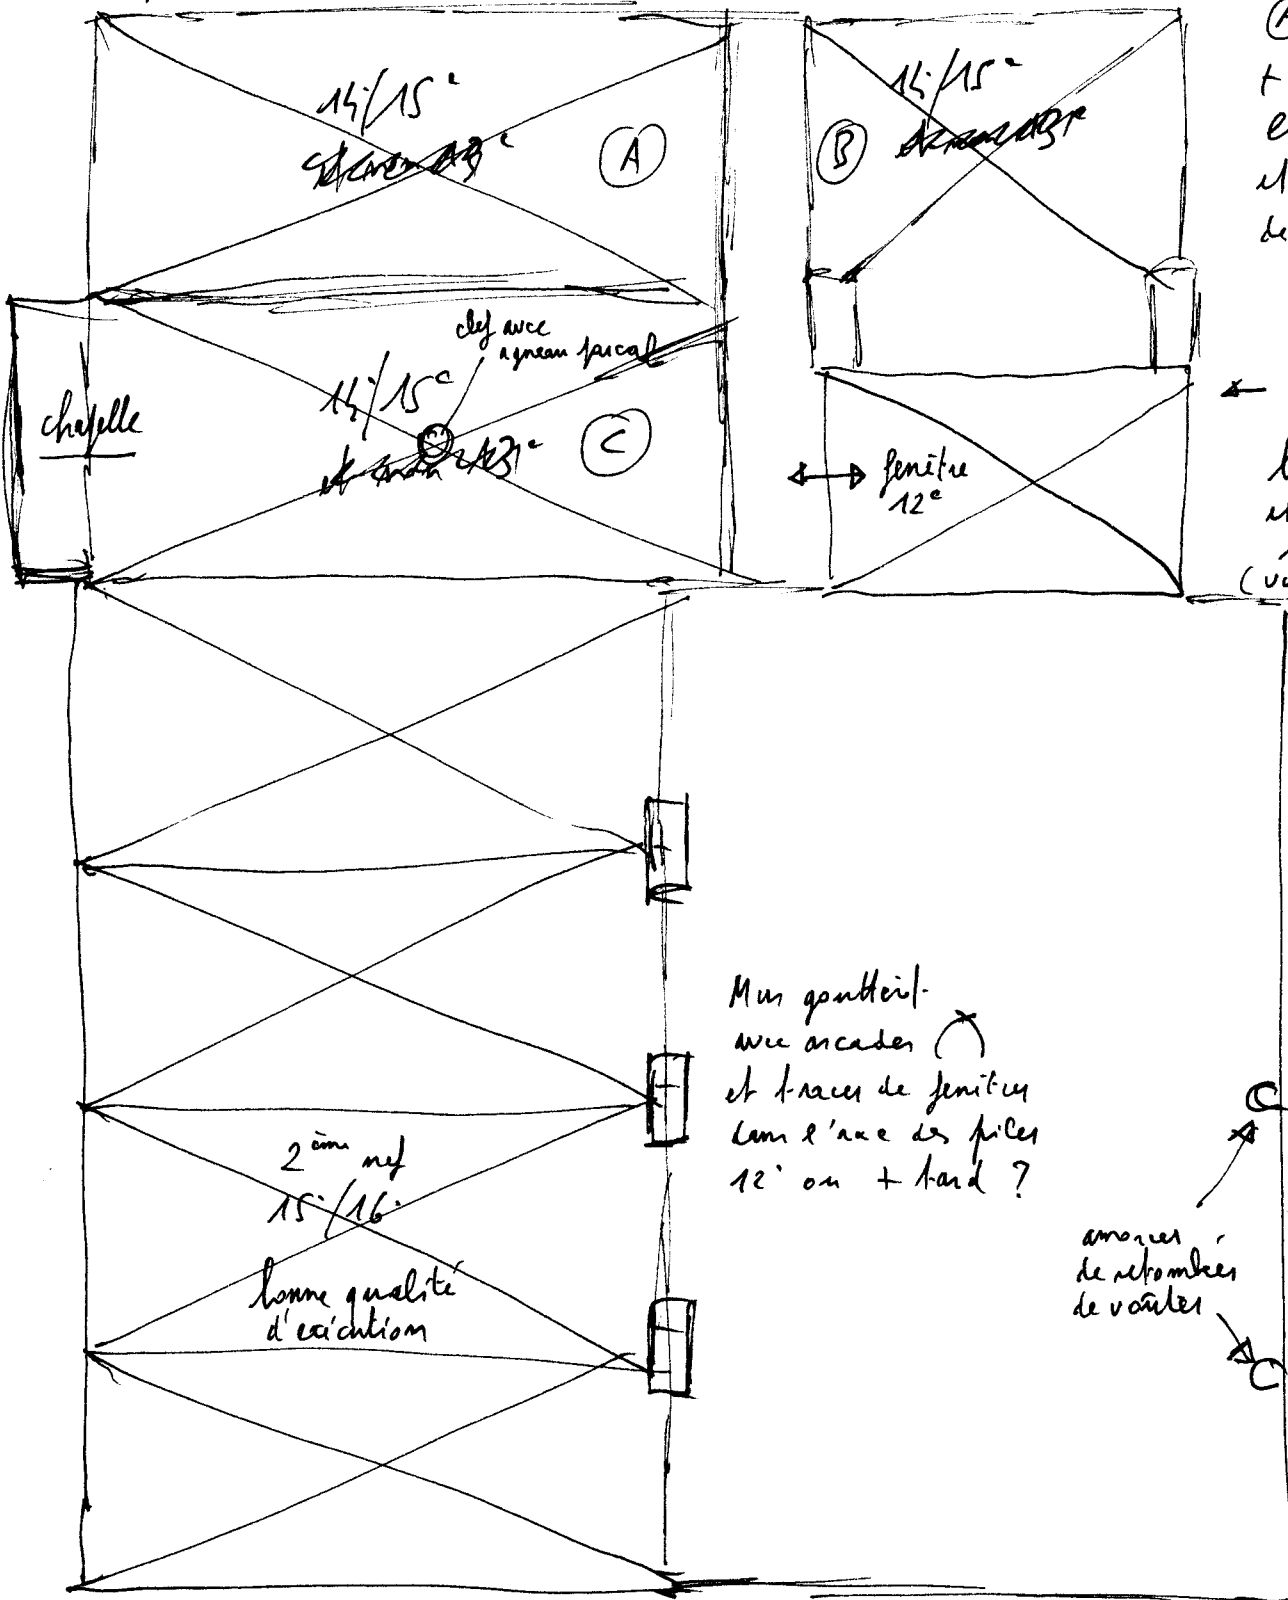 14/15e
A
14/15e
B
clef avec
agneau pascal
14/15e
C
chapelle
fenêtre
12e
Mur gouttereau
avec arcades
et traces de fenêtres
dans l'axe des piles
12e ou + tard ?
2ème nef
15e/16e
bonne qualité
d'exécution
amorces
de retombées
de voûtes